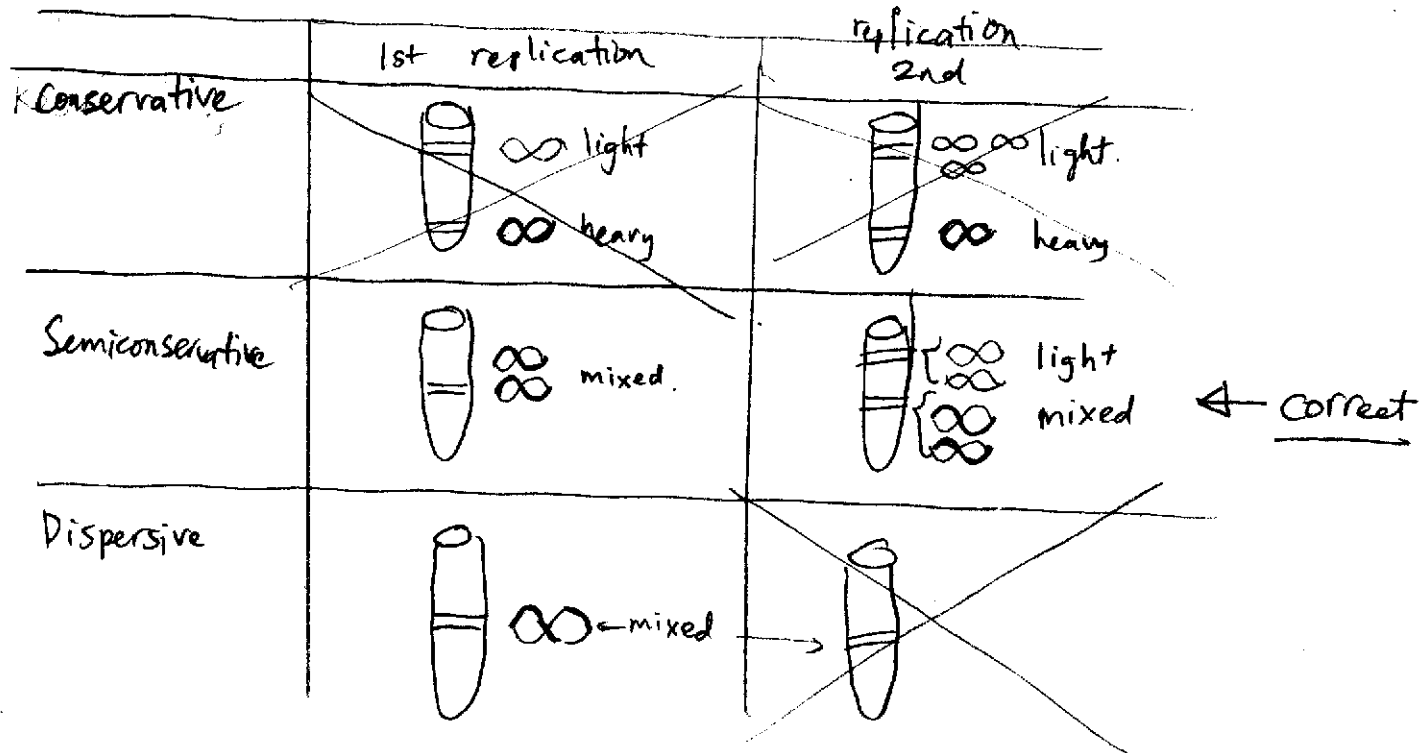 1st replication
replication
2nd
Conservative
light
heavy
light.
heavy
Semiconservative
mixed.
light
mixed
correct
Dispersive
mixed